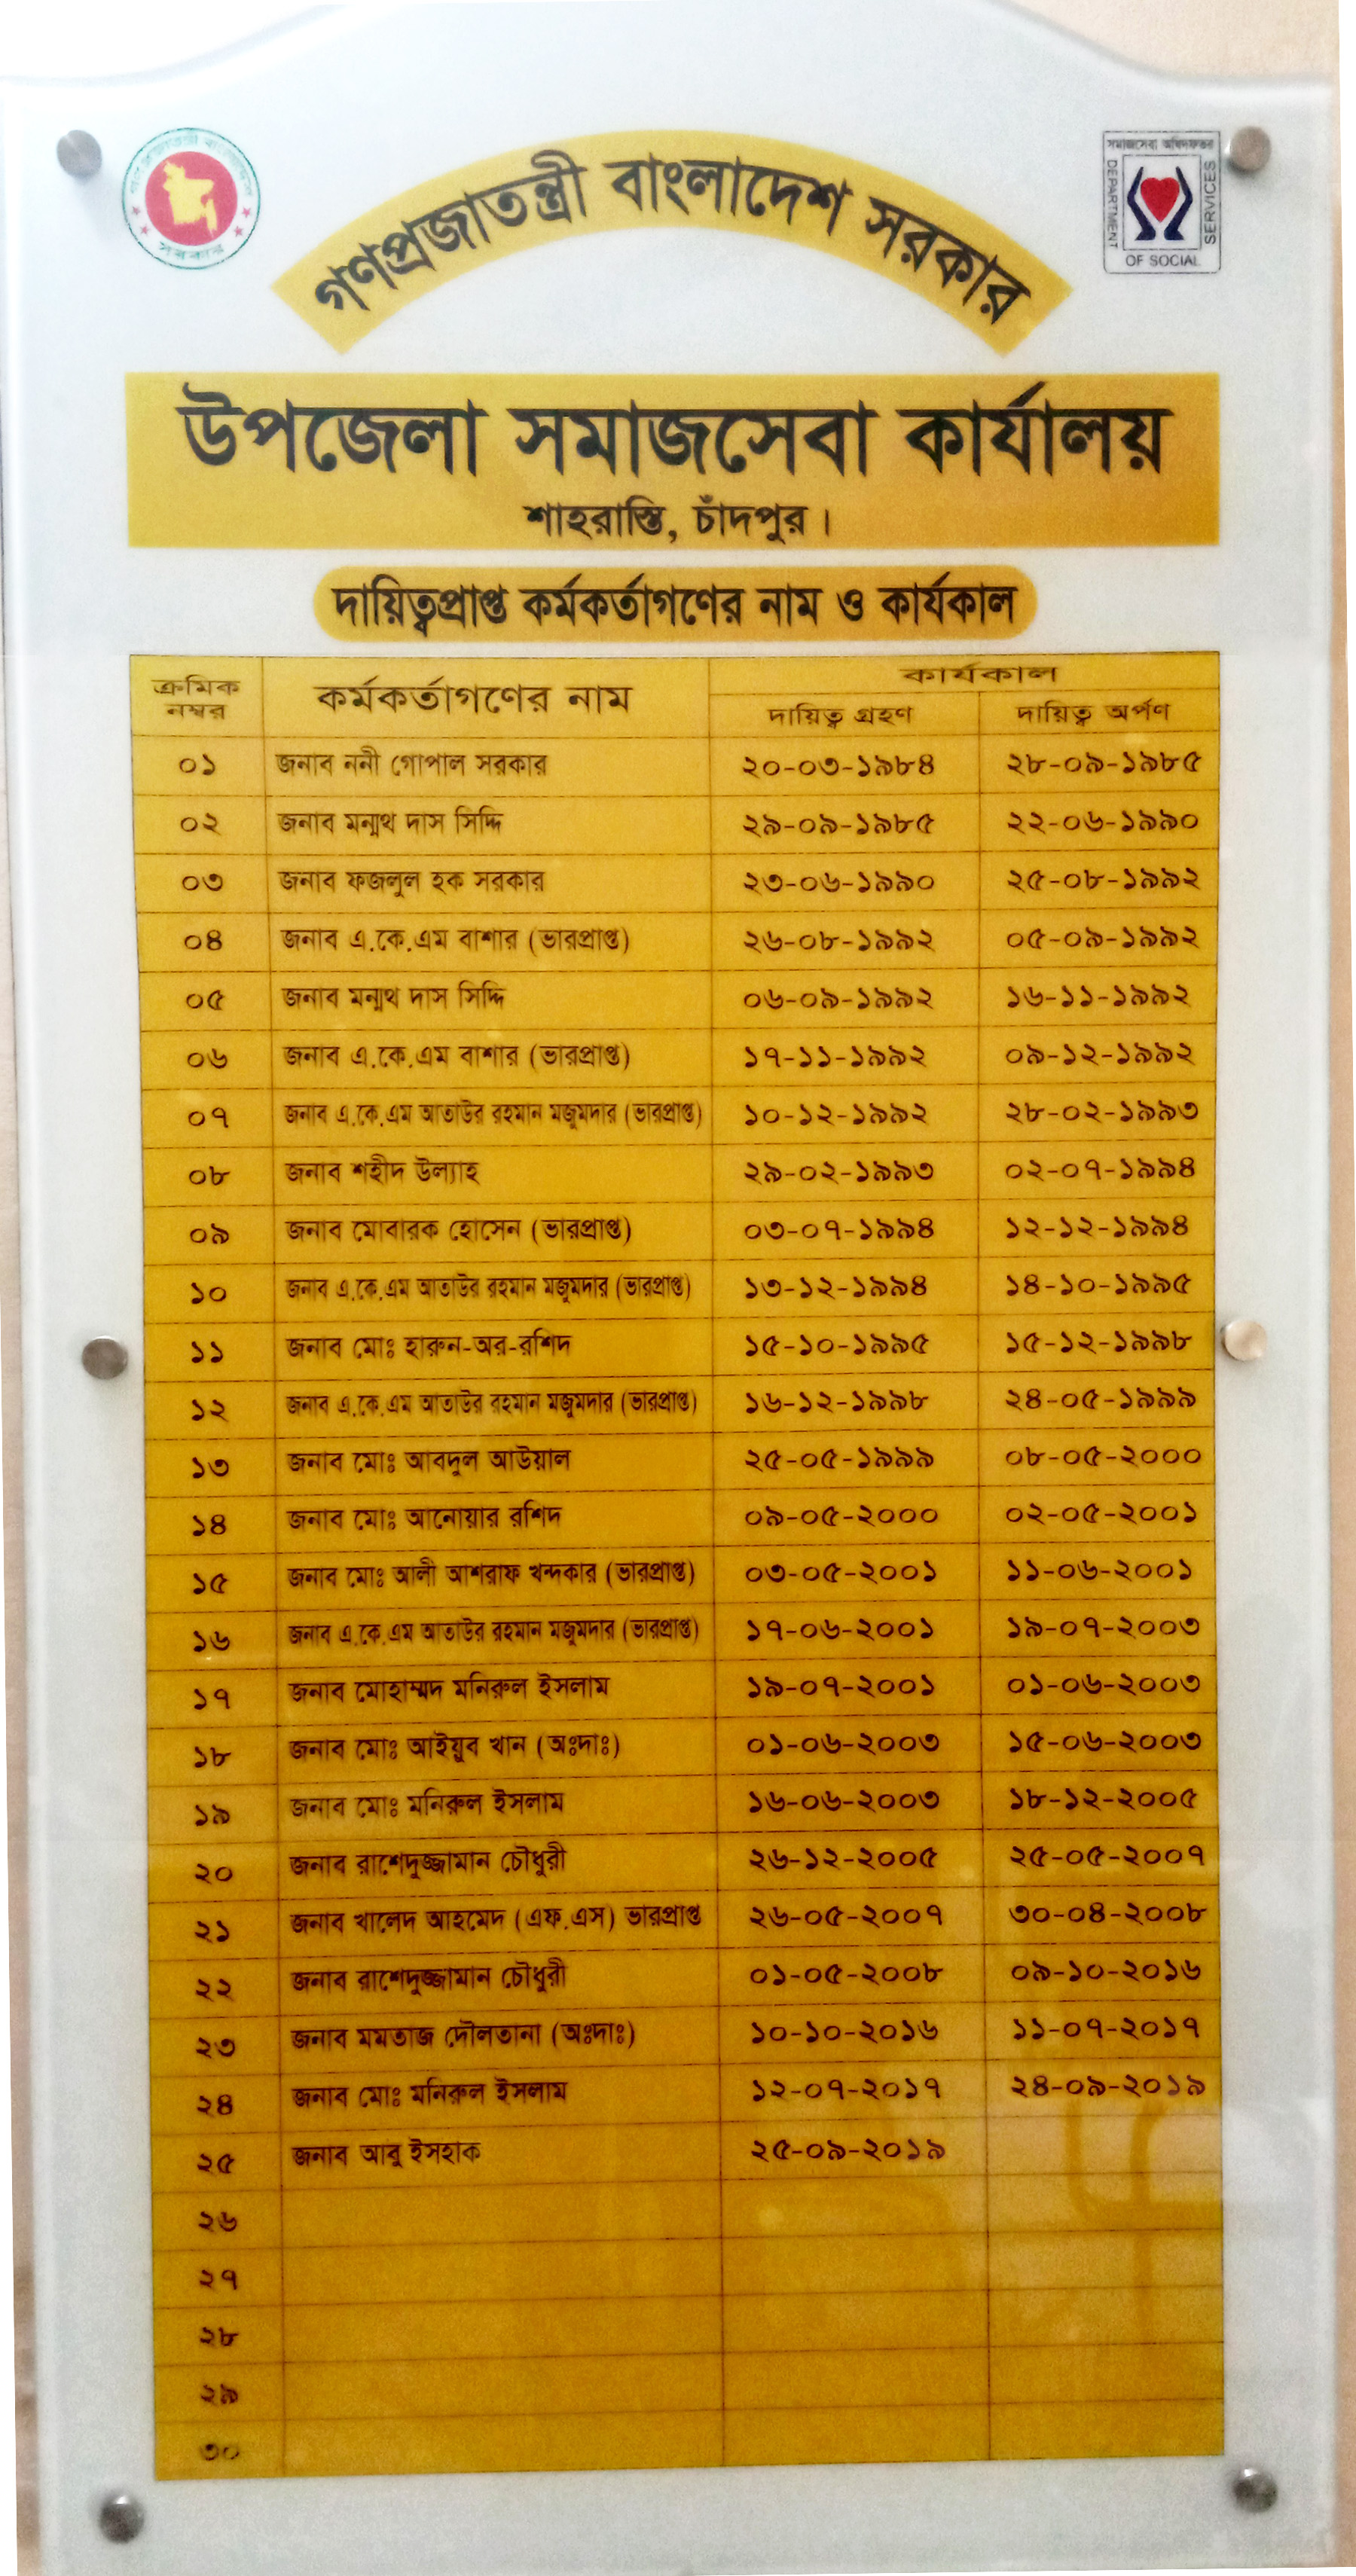 গণপ্রজাতন্ত্রী বাংলাদেশ সরকার
সরকার
সমাজসেবা অধিদফতর
DEPARTMENT
OF SOCIAL
SERVICES
উপজেলা সমাজসেবা কার্যালয়
শাহরাস্তি, চাঁদপুর।
দায়িত্বপ্রাপ্ত কর্মকর্তাগণের নাম ও কার্যকাল
ক্রমিক নম্বর কর্মকর্তাগণের নাম কার্যকাল
দায়িত্ব গ্রহণ দায়িত্ব অর্পণ
০১ জনাব ননী গোপাল সরকার ২০-০৩-১৯৮৪ ২৮-০৯-১৯৮৫
০২ জনাব মন্মথ দাস সিদ্দি ২৯-০৯-১৯৮৫ ২২-০৬-১৯৯০
০৩ জনাব ফজলুল হক সরকার ২৩-০৬-১৯৯০ ২৫-০৮-১৯৯২
০৪ জনাব এ.কে.এম বাশার (ভারপ্রাপ্ত) ২৬-০৮-১৯৯২ ০৫-০৯-১৯৯২
০৫ জনাব মন্মথ দাস সিদ্দি ০৬-০৯-১৯৯২ ১৬-১১-১৯৯২
০৬ জনাব এ.কে.এম বাশার (ভারপ্রাপ্ত) ১৭-১১-১৯৯২ ০৯-১২-১৯৯২
০৭ জনাব এ.কে.এম আতাউর রহমান মজুমদার (ভারপ্রাপ্ত) ১০-১২-১৯৯২ ২৮-০২-১৯৯৩
০৮ জনাব শহীদ উল্যাহ ২৯-০২-১৯৯৩ ০২-০৭-১৯৯৪
০৯ জনাব মোবারক হোসেন (ভারপ্রাপ্ত) ০৩-০৭-১৯৯৪ ১২-১২-১৯৯৪
১০ জনাব এ.কে.এম আতাউর রহমান মজুমদার (ভারপ্রাপ্ত) ১৩-১২-১৯৯৪ ১৪-১০-১৯৯৫
১১ জনাব মোঃ হারুন-অর-রশিদ ১৫-১০-১৯৯৫ ১৫-১২-১৯৯৮
১২ জনাব এ.কে.এম আতাউর রহমান মজুমদার (ভারপ্রাপ্ত) ১৬-১২-১৯৯৮ ২৪-০৫-১৯৯৯
১৩ জনাব মোঃ আবদুল আউয়াল ২৫-০৫-১৯৯৯ ০৮-০৫-২০০০
১৪ জনাব মোঃ আনোয়ার রশিদ ০৯-০৫-২০০০ ০২-০৫-২০০১
১৫ জনাব মোঃ আলী আশরাফ খন্দকার (ভারপ্রাপ্ত) ০৩-০৫-২০০১ ১১-০৬-২০০১
১৬ জনাব এ.কে.এম আতাউর রহমান মজুমদার (ভারপ্রাপ্ত) ১৭-০৬-২০০১ ১৯-০৭-২০০৩
১৭ জনাব মোহাম্মদ মনিরুল ইসলাম ১৯-০৭-২০০১ ০১-০৬-২০০৩
১৮ জনাব মোঃ আইয়ুব খান (অঃদাঃ) ০১-০৬-২০০৩ ১৫-০৬-২০০৩
১৯ জনাব মোঃ মনিরুল ইসলাম ১৬-০৬-২০০৩ ১৮-১২-২০০৫
২০ জনাব রাশেদুজ্জামান চৌধুরী ২৬-১২-২০০৫ ২৫-০৫-২০০৭
২১ জনাব খালেদ আহমেদ (এফ.এস) ভারপ্রাপ্ত ২৬-০৫-২০০৭ ৩০-০৪-২০০৮
২২ জনাব রাশেদুজ্জামান চৌধুরী ০১-০৫-২০০৮ ০৯-১০-২০১৬
২৩ জনাব মমতাজ দৌলতানা (অঃদাঃ) ১০-১০-২০১৬ ১১-০৭-২০১৭
২৪ জনাব মোঃ মনিরুল ইসলাম ১২-০৭-২০১৭ ২৪-০৯-২০১৯
২৫ জনাব আবু ইসহাক ২৫-০৯-২০১৯
২৬
২৭
২৮
২৯
৩০